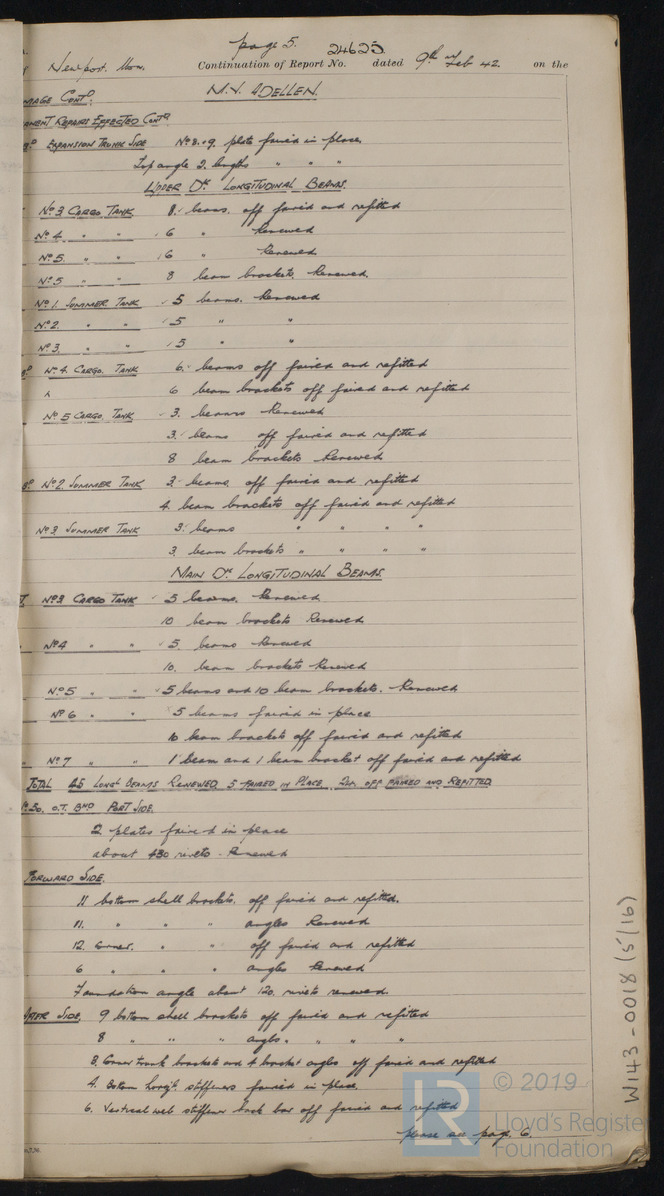 page 5.
24625
Newport. Mon. Continuation of Report No. dated 9th Feb 42. on the
M.V. ADELLEN.
MAGE CONTD.
ANENT REPAIRS EFFECTED CONTD
EXPANSION TRUNK SIDE No 8.&9. plate faired in place.
Top angle 2. lengths " " "
UPPER DK LONGITUDINAL BEAMS.
No 3 CARGO TANK 8. beams. off faired and refitted
No 4 " " 6 " Renewed
No 5. " " 6 " Renewed
No 5 " " 8 beam brackets. Renewed.
No 1. SUMMER TANK 5 beams. Renewed
No 2. " " 5 " "
No 3. " " 5 " "
No 4. CARGO. TANK 6. beams off faired and refitted
" 6 beam brackets off faired and refitted
No 5 CARGO. TANK 3. beams Renewed
3. beams off faired and refitted
8 beam brackets Renewed
No 2. SUMMER TANK 3. beams. off faired and refitted
4. beam brackets off faired and refitted
No 3. SUMMER TANK 3. beams " " " "
3. beam brackets " " " "
MAIN DK LONGITUDINAL BEAMS.
No 3 CARGO TANK 5 beams. Renewed
10 beam brackets Renewed
No 4 " " 5. beams Renewed
10. beam brackets Renewed
No 5 " " 5 beams and 10 beam brackets. Renewed
No 6 " " 5 beams faired in place
10 beam brackets off faired and refitted
No 7 " " 1 beam and 1 beam bracket off faired and refitted
TOTAL 45 LONGL BEAMS RENEWED 5 FAIRED IN PLACE. 24 OFF FAIRED AND REFITTED.
No 50. O.T. BHD PORT SIDE.
2 plates faired in place
about 430 rivets - Renewed
FORWARD SIDE.
11 bottom shell brackets. off faired and refitted.
11. " " " angles Renewed
12 Corner. " " off faired and refitted
6 " " " angles Renewed
Foundation angle about 120. rivets renewed.
AFTER SIDE. 9 bottom shell brackets off faired and refitted
8 " " " angles. " " "
3. Corner trunk brackets and 4 bracket angles off faired and refitted
4. Bottom Longl. stiffeners faired in place.
6. Vertical web stiffener back bar off faired and refitted
please see page 6.
W143-0018 (5/16)
LR © 2019
Lloyd's Registe
Foundation